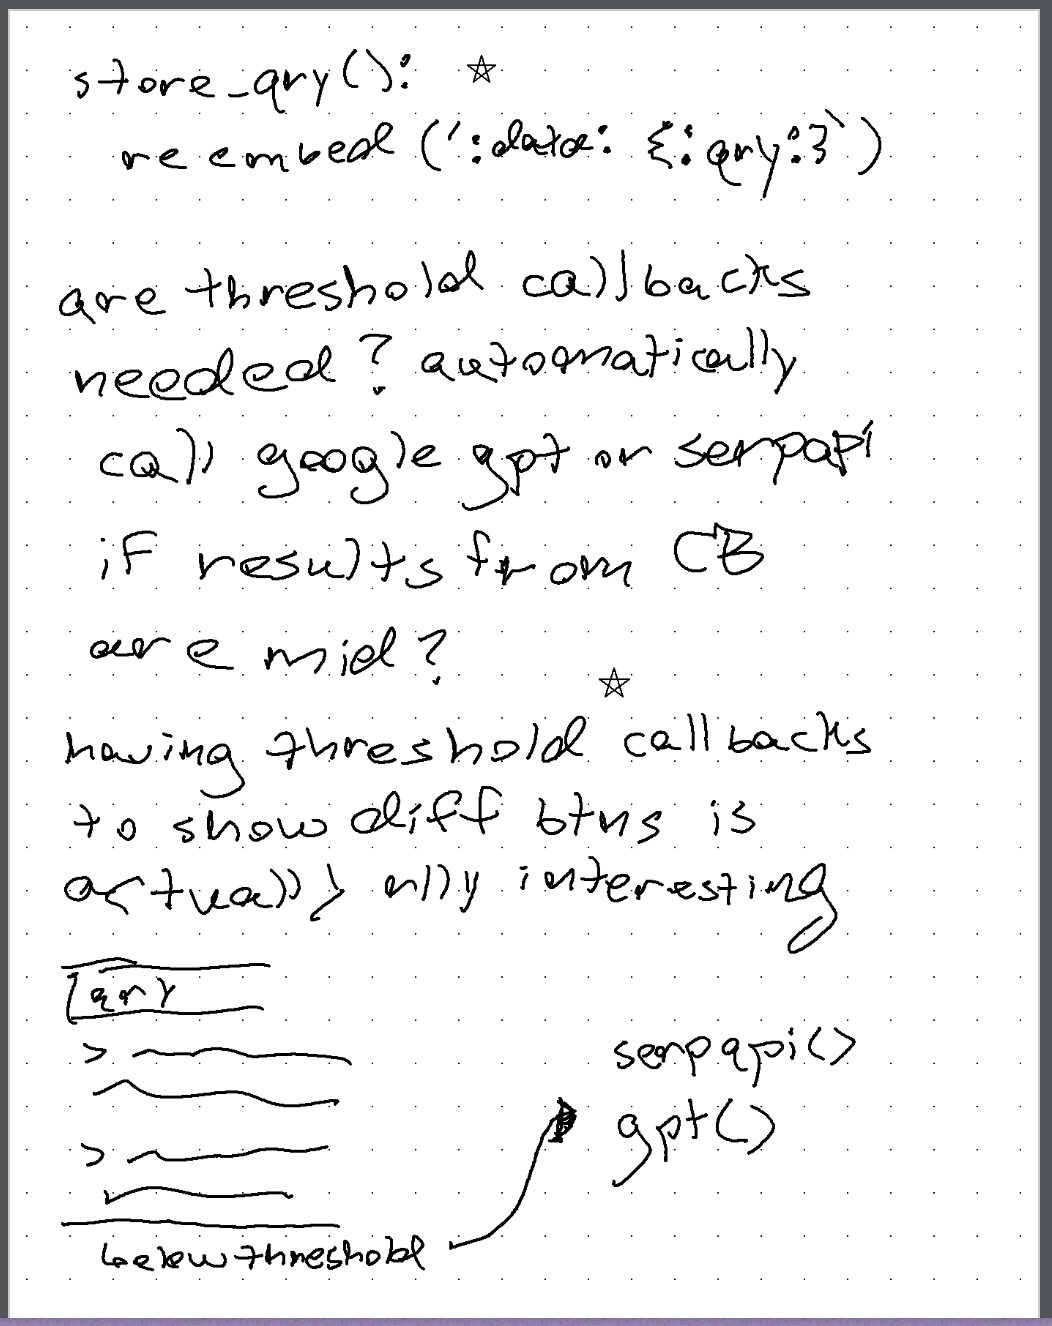 store_qry(): ☆
reembed (':data: {:qry:}`)
are threshold callbacks
needed? automatically
call google gpt or serpapi
if results from CB
are mid?
☆
having threshold callbacks
to show diff btns is
actually rlly interesting
qry
>
>
below threshold
serpapi()
gpt()